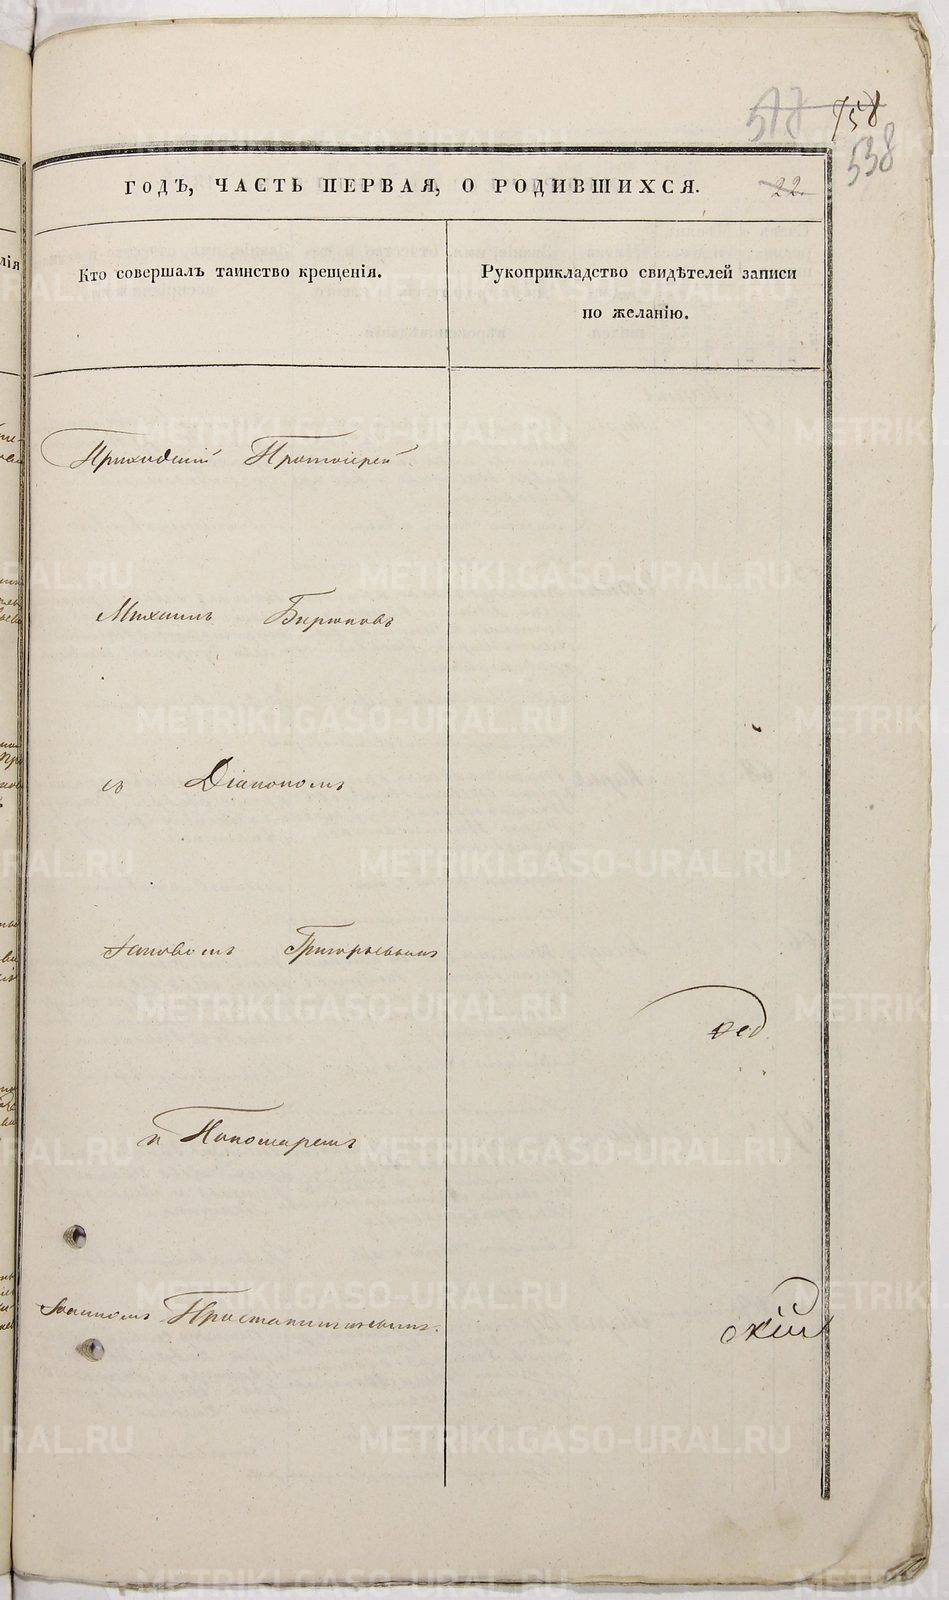 758
538
ГОДЪ, ЧАСТЬ ПЕРВАЯ, О РОДИВШИХСЯ.
22.
Кто совершалъ таинство крещенія.
Рукоприкладство свидѣтелей записи
по желанію.
Приходскій Протоіерей
Михаилъ Бирюковъ
съ Діакономъ
Іаковомъ Григорьевымъ
ред
и Пономаремъ
Іоанномъ
скій
METRIKI.GASO-URAL.RU